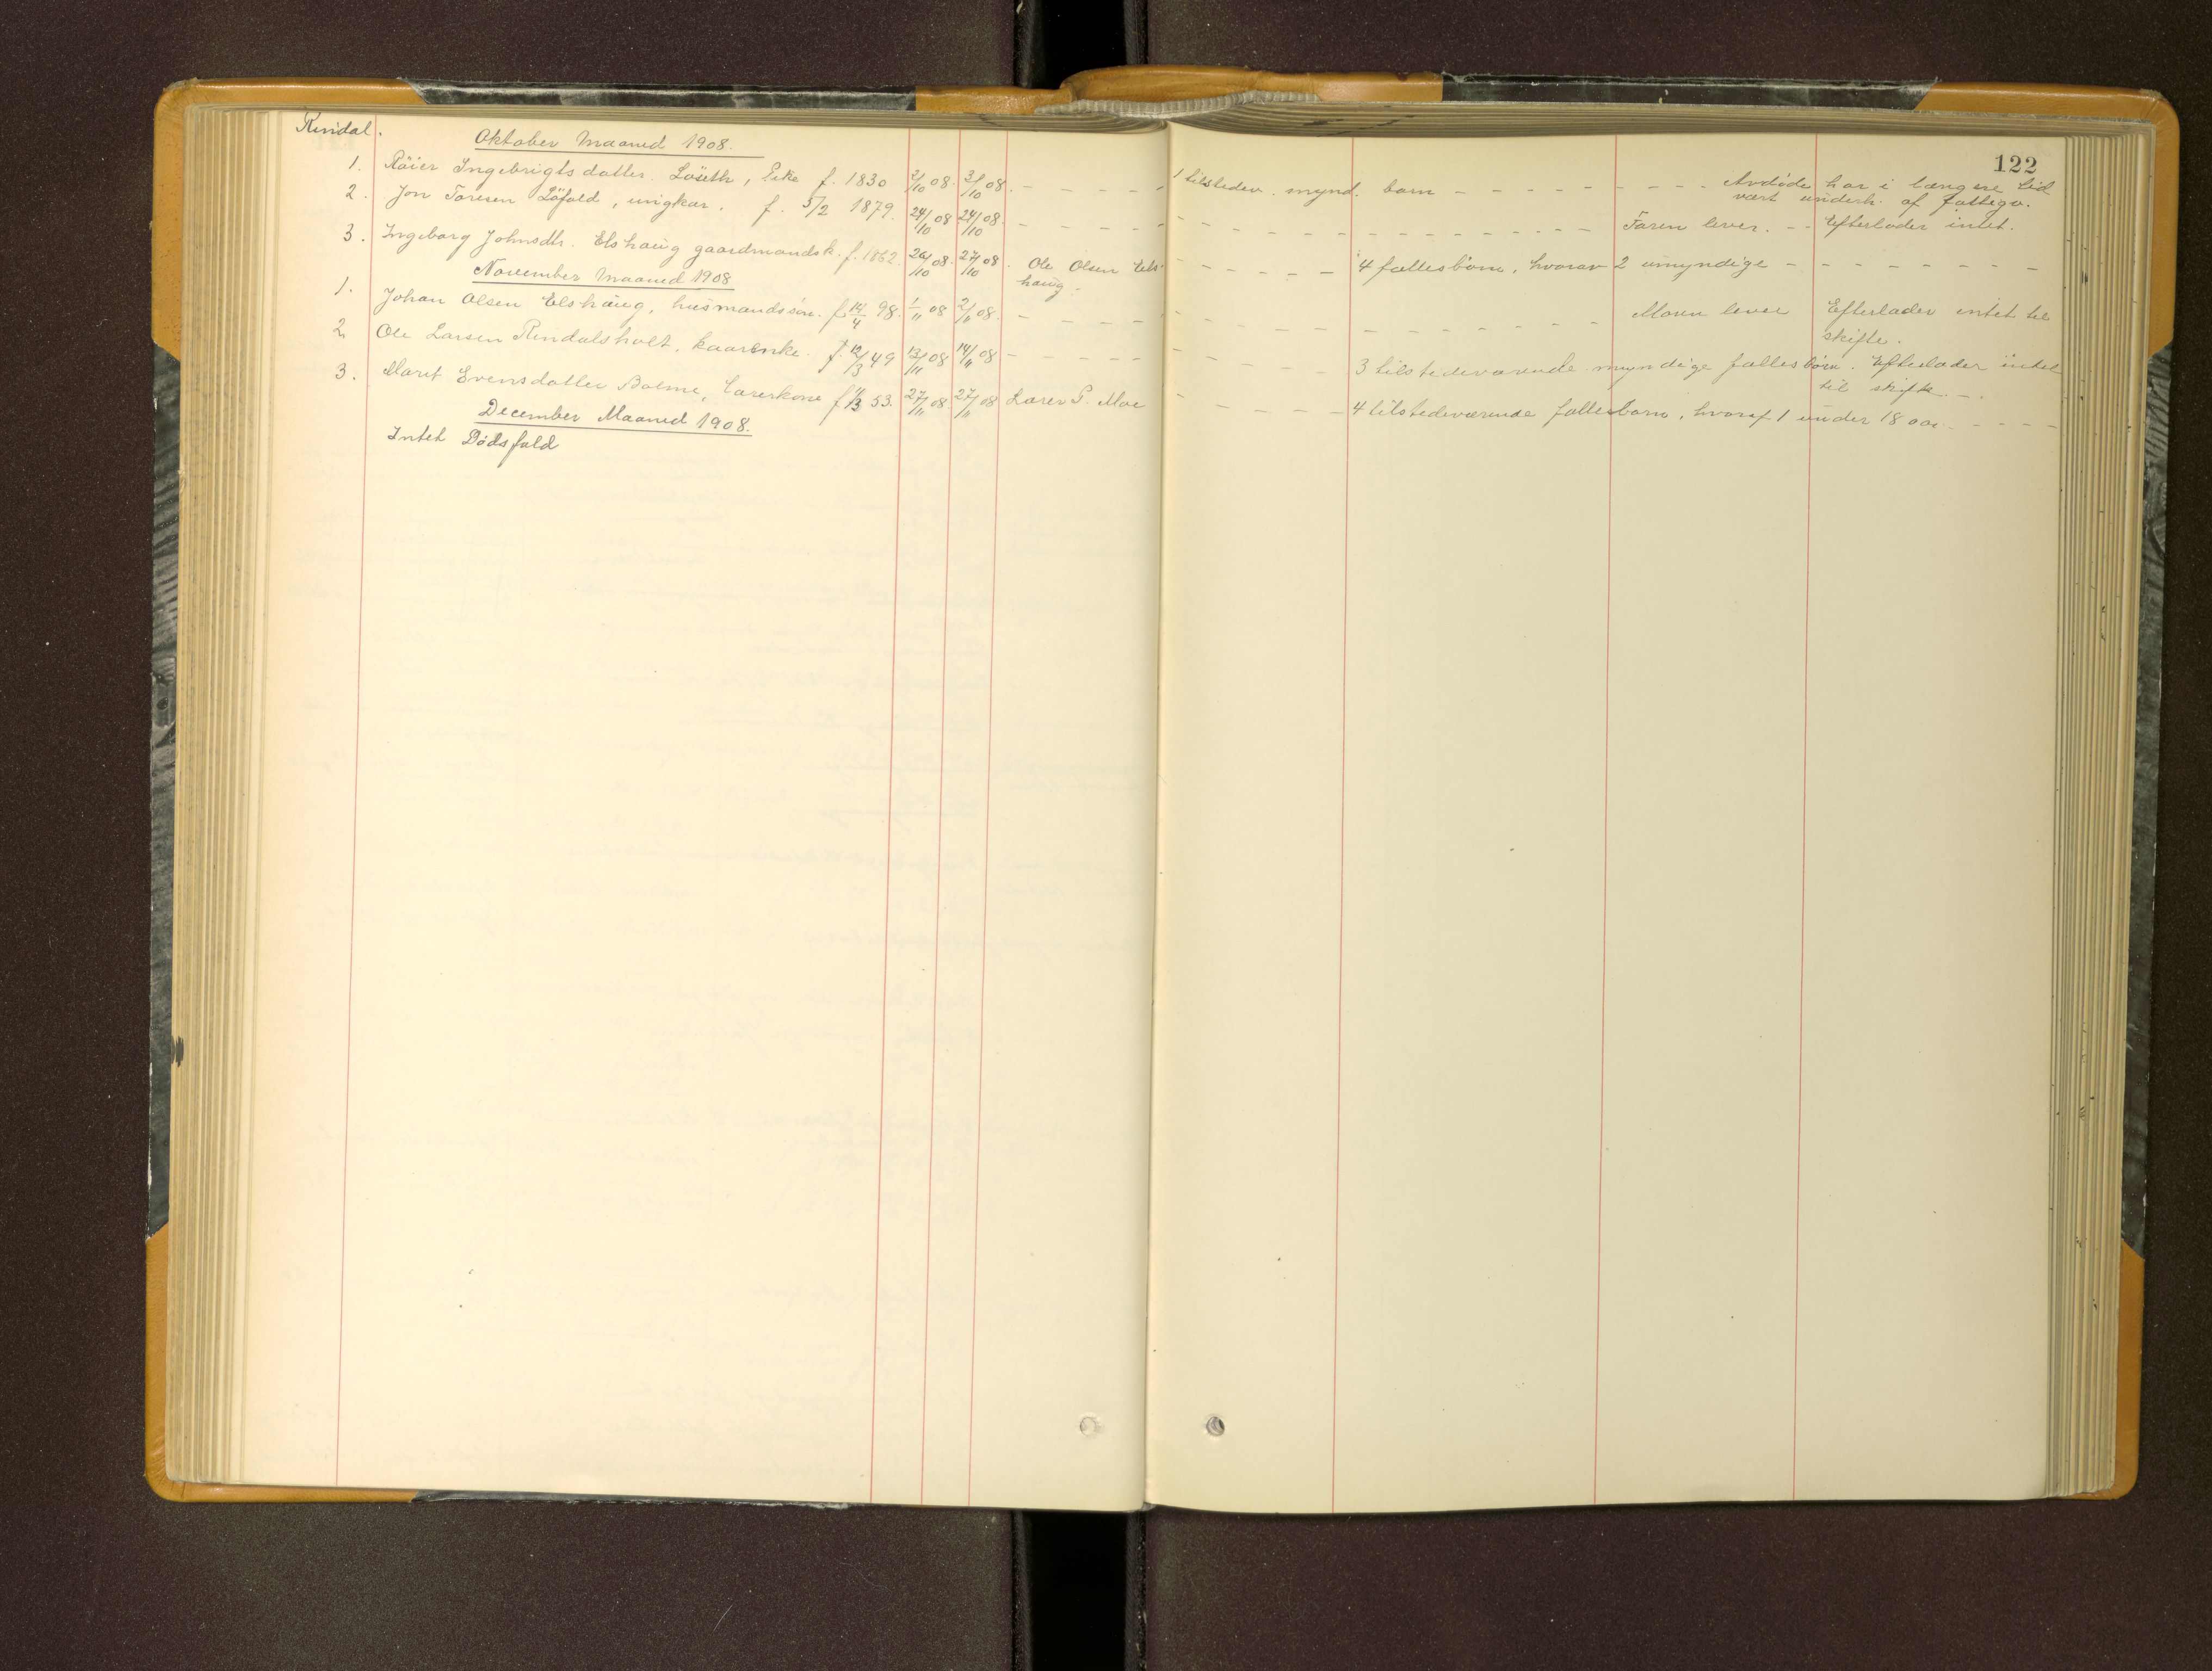 122
Rindal.
Oktober Maaned 1908.
1. Röier Ingebrigtsdatter Löseth, Enke f. 1830 2/10 08. 3/10 08. - - - - - 1 tilstedev. mynd. barn - - - - - - - - - - Avdöde har i længere tid
vært underh. af fattigv.
2. Jon Toresen Löfald, ungkar. f. 5/2 1879. 24/10 08 24/10 08 - - - - - - - - - - - - - - - - - - - Faren lever. - - Efterlader intet.
3. Ingeborg Johnsdtr. Elshaug gaardmandsk. f. 1862. 26/10 08. 27/10 08. Ole Olsen Els- - - - - - - - 4 fællesbörn, hvorav 2 umyndige - - - - - - - -
haug.
November Maaned 1908
1. Johan Olsen Elshaug, husmandssön. f 14/4 98. 1/11 08 2/11 08. - - - - - - - - - - - - - - - - - Moren lever Efterlader intet til
skifte.
2. Ole Larsen Rindalsholt, kaarenke. f. 12/3 49 13/11 08 14/11 08 - - - - - - - - - - - 3 tilstedeværende myndige fællesbörn. Efterlader intet
til skifte. -
3. Marit Evensdatter Bolme, Lærerkone f 11/3 53. 27/11 08. 27/11 08 Lærer P. Moe - - - - - - 4 tilstedeværende fællesbörn, hvoraf 1 under 18 aar. - - - -
December Maaned 1908.
Intet Dödsfald